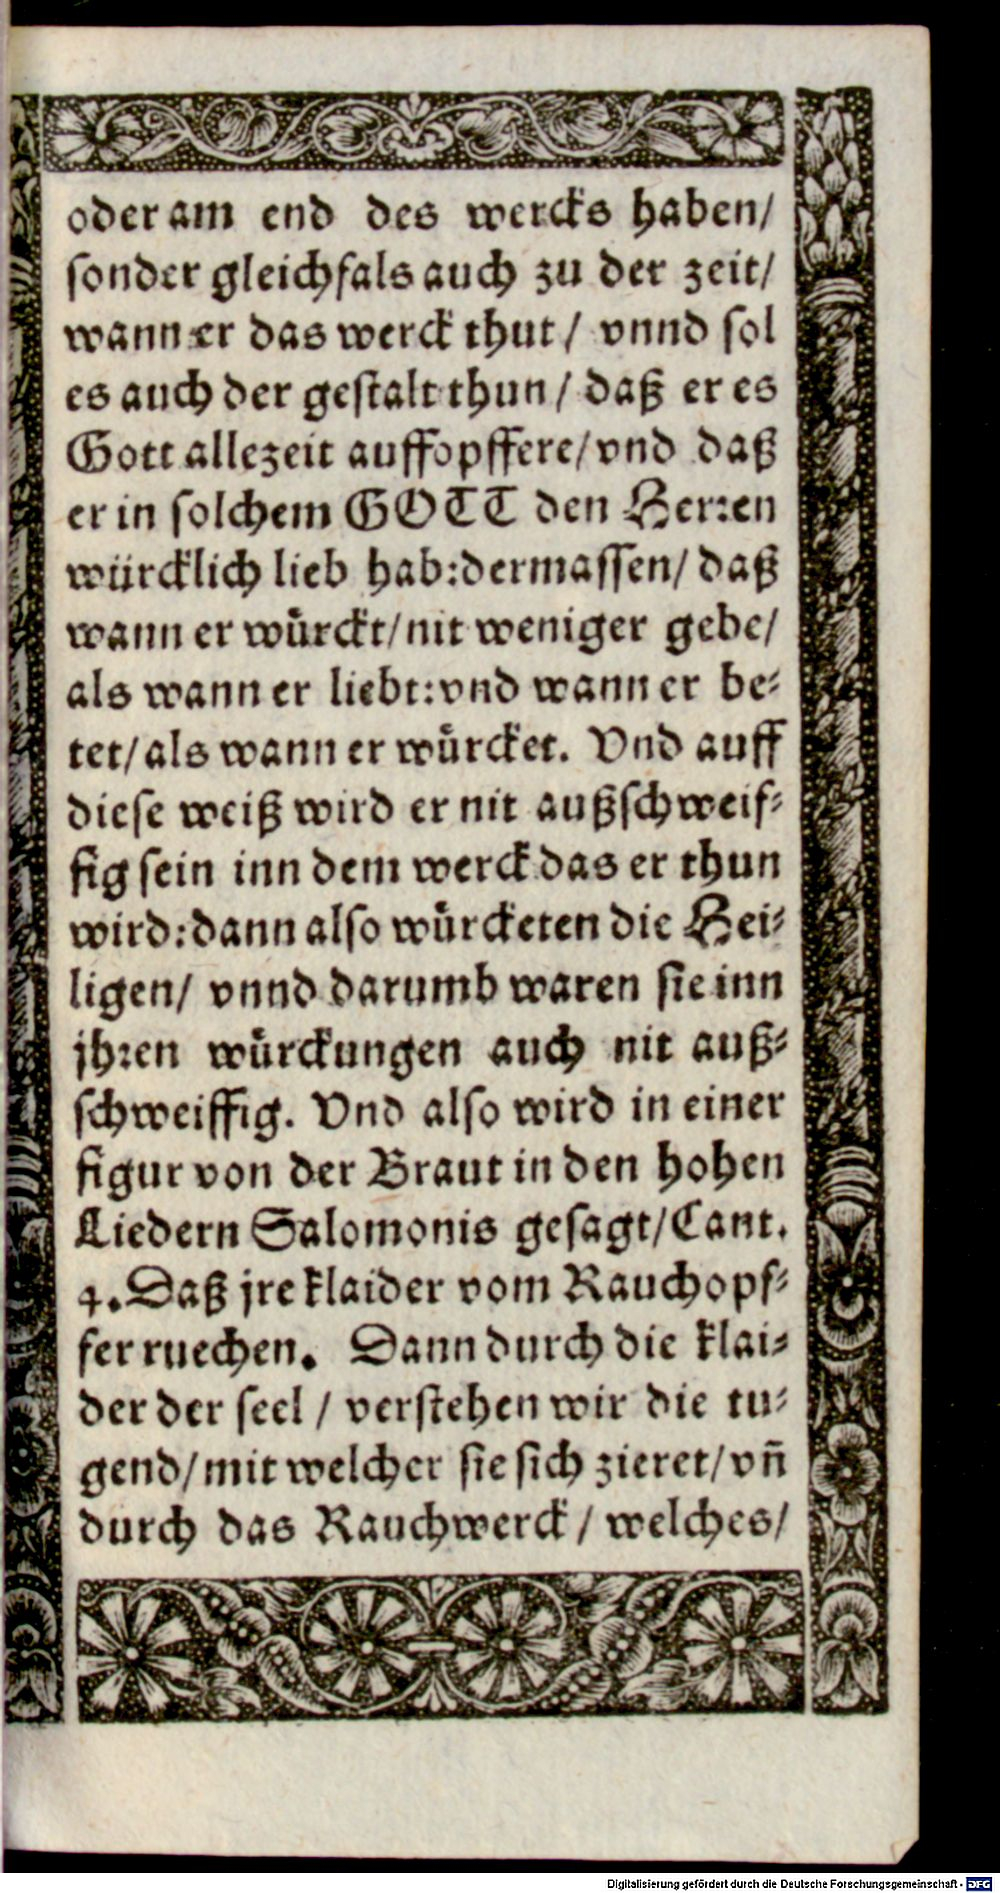 oder am end des wercks haben/
sonder gleichfals auch zu der zeit/
wann er das werck thut / vnnd sol
es auch der gestalt thun / daß er es
Gott allezeit auffopffere/vnd daß
er in solchem GOTT den Herren
würcklich lieb hab:dermassen/ daß
wann er wuͤrckt/nit weniger gebe/
als wann er liebt:vnd wann er be-
tet/als wann er wuͤrcket. Vnd auff
diese weiß wird er nit außschweif-
fig sein inn dem werck das er thun
wird:dann also wuͤrcketen die Hei-
ligen/ vnnd darumb waren sie inn
jhren wuͤrckungen auch nit auß-
schweiffig. Vnd also wird in einer
figur von der Braut in den hohen
Liedern Salomonis gesagt/Cant.
4. Daß jre klaider vom Rauchopf-
fer ruechen. Dann durch die klai-
der der seel / verstehen wir die tu-
gend/mit welcher sie sich zieret/vñ
durch das Rauchwerck / welches/
Digitalisierung gefördert durch die Deutsche Forschungsgemeinschaft - DFG